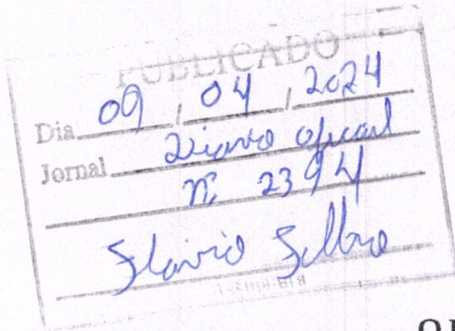 PUBLICADO
Dia 09 / 04 / 2024
Jornal Diario oficial
nº 2394
Assinatura